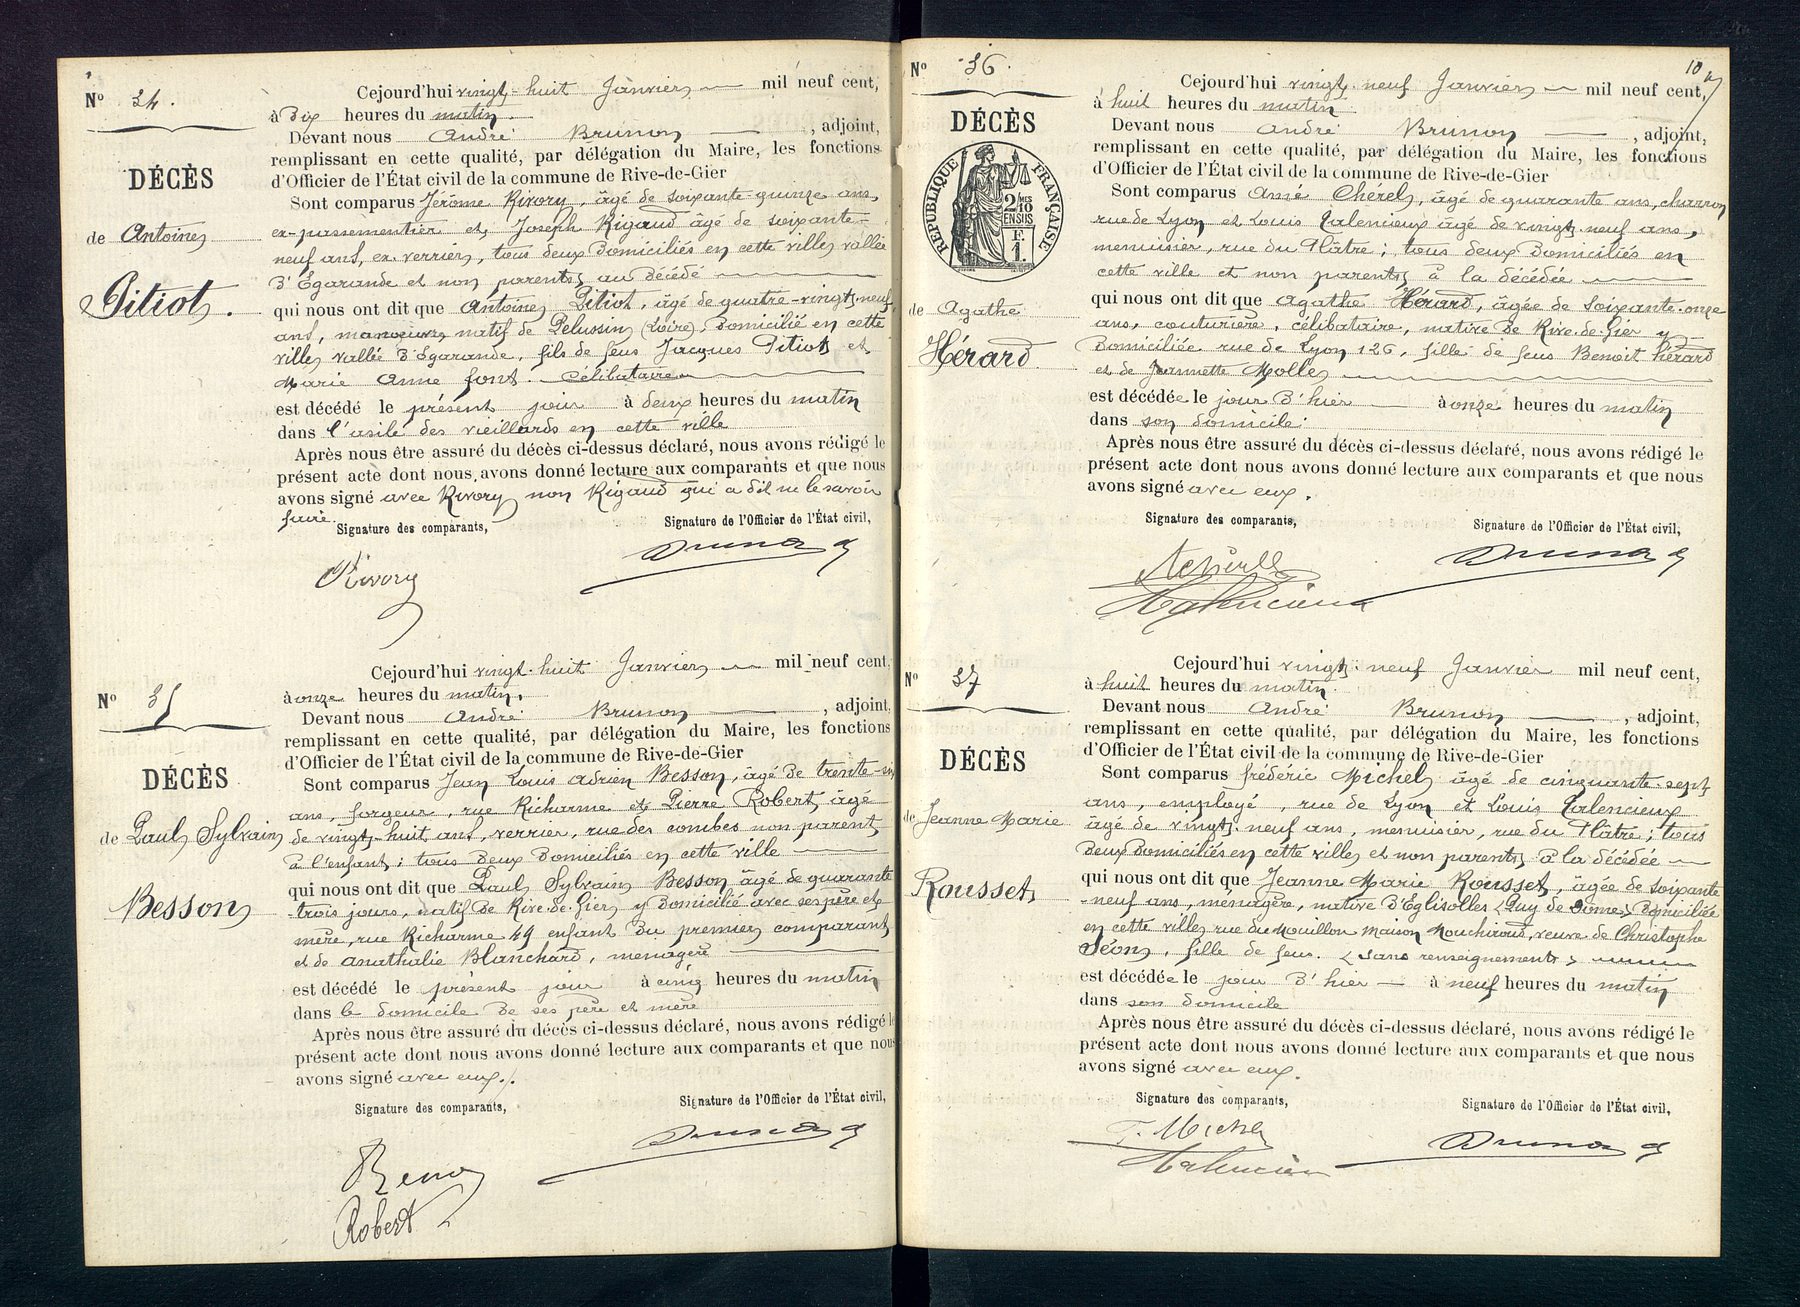 N° 34.
DÉCÈS
de Antoine
Pitiot.
Cejourd'hui vingt-huit Janvier mil neuf cent,
à Dix heures du matin.
Devant nous André Brunon, adjoint,
remplissant en cette qualité, par délégation du Maire, les fonctions
d'Officier de l'État civil de la commune de Rive-de-Gier
Sont comparus Jérôme Rivory, âgé de soixante-quinze ans,
ex-passementier et Joseph Rigaud âgé de soixante-
neuf ans, ex verrier, tous deux domiciliés en cette ville vallée
d'Égarande et non parents au décédé
qui nous ont dit que Antoine Pitiot, âgé de quatre-vingt-neuf
ans, manoeuvre natif de Pelussin (Loire), domicilié en cette
ville vallée d'Égarande, fils de feus Jacques Pitiot et
Marie Anne font. célibataire
est décédé le présent jour à deux heures du matin
dans l'asile des vieillards en cette ville
Après nous être assuré du décès ci-dessus déclaré, nous avons rédigé le
présent acte dont nous avons donné lecture aux comparants et que nous
avons signé avec Rivory non Rigaud qui a dit ne le savoir
faire.
Signature des comparants, Signature de l'Officier de l'État civil,
Rivory
N° 35
DÉCÈS
de Paul Sylvain
Besson
Cejourd'hui vingt-huit Janvier mil neuf cent,
à onze heures du matin.
Devant nous André Brunon, adjoint,
remplissant en cette qualité, par délégation du Maire, les fonctions
d'Officier de l'État civil de la commune de Rive-de-Gier
Sont comparus Jean Louis Adrien Besson, âgé de trente-six
ans, forgeur, rue Richarme et Pierre Robert, âgé
de vingt-huit ans, verrier, rue des combes non parent
à l'enfant; tous deux domiciliés en cette ville
qui nous ont dit que Paul Sylvain Besson âgé de quarante
-trois jours, natif de Rive-de-Gier y domicilié avec ses père et
mère, rue Richarme 49 enfant du premier comparant
et de Anathalie Blanchard, menagère
est décédé le présent jour à cinq heures du matin
dans le domicile de ses père et mère
Après nous être assuré du décès ci-dessus déclaré, nous avons rédigé le
présent acte dont nous avons donné lecture aux comparants et que nous
avons signé avec eux.
Signature des comparants, Signature de l'Officier de l'État civil,
Robert
10
N° 36.
DÉCÈS
RÉPUBLIQUE FRANÇAISE
2/10 MES
EN SUS
F.
1.
de Agathe
Hérard
Cejourd'hui vingt-neuf Janvier mil neuf cent,
à huit heures du matin
Devant nous André Brunon, adjoint,
remplissant en cette qualité, par délégation du Maire, les fonctions
d'Officier de l'État civil de la commune de Rive-de-Gier
Sont comparus Aimé Chérel, âgé de quarante ans, charron
rue de Lyon et Louis Talencieux âgé de vingt-neuf ans,
menuisier, rue du Plâtre; tous deux domiciliés en
cette ville et non parents à la décédée
qui nous ont dit que Agathe Hérard, âgée de soixante-onze
ans, couturière, célibataire, native de Rive-de-Gier y
domiciliée rue de Lyon 126, fille de feus Benoit Hérard
et de Jeannette Molle
est décédée le jour d'hier à onze heures du matin
dans son domicile.
Après nous être assuré du décès ci-dessus déclaré, nous avons rédigé le
présent acte dont nous avons donné lecture aux comparants et que nous
avons signé avec eux.
Signature des comparants, Signature de l'Officier de l'État civil,
N° 37
DÉCÈS
de Jeanne Marie
Rousset
Cejourd'hui vingt-neuf Janvier mil neuf cent,
à huit heures du matin.
Devant nous André Brunon, adjoint,
remplissant en cette qualité, par délégation du Maire, les fonctions
d'Officier de l'État civil de la commune de Rive-de-Gier
Sont comparus frédéric Michel âgé de cinquante-sept
ans, employé, rue de Lyon et Louis Talencieux
âgé de vingt-neuf ans, menuisier, rue du Plâtre; tous
deux domiciliés en cette ville et non parents à la décédée
qui nous ont dit que Jeanne Marie Rousset, âgée de soixante
-neuf ans, ménagère, native d'Eglisolles (Puy de Dôme) domiciliée
en cette ville rue du Mouillon maison Mouchiroud, veuve de Christophe
Séon, fille de feus. (sans renseignements)
est décédée le jour d'hier à neuf heures du matin
dans son domicile
Après nous être assuré du décès ci-dessus déclaré, nous avons rédigé le
présent acte dont nous avons donné lecture aux comparants et que nous
avons signé avec eux.
Signature des comparants, Signature de l'Officier de l'État civil,
F. Michel